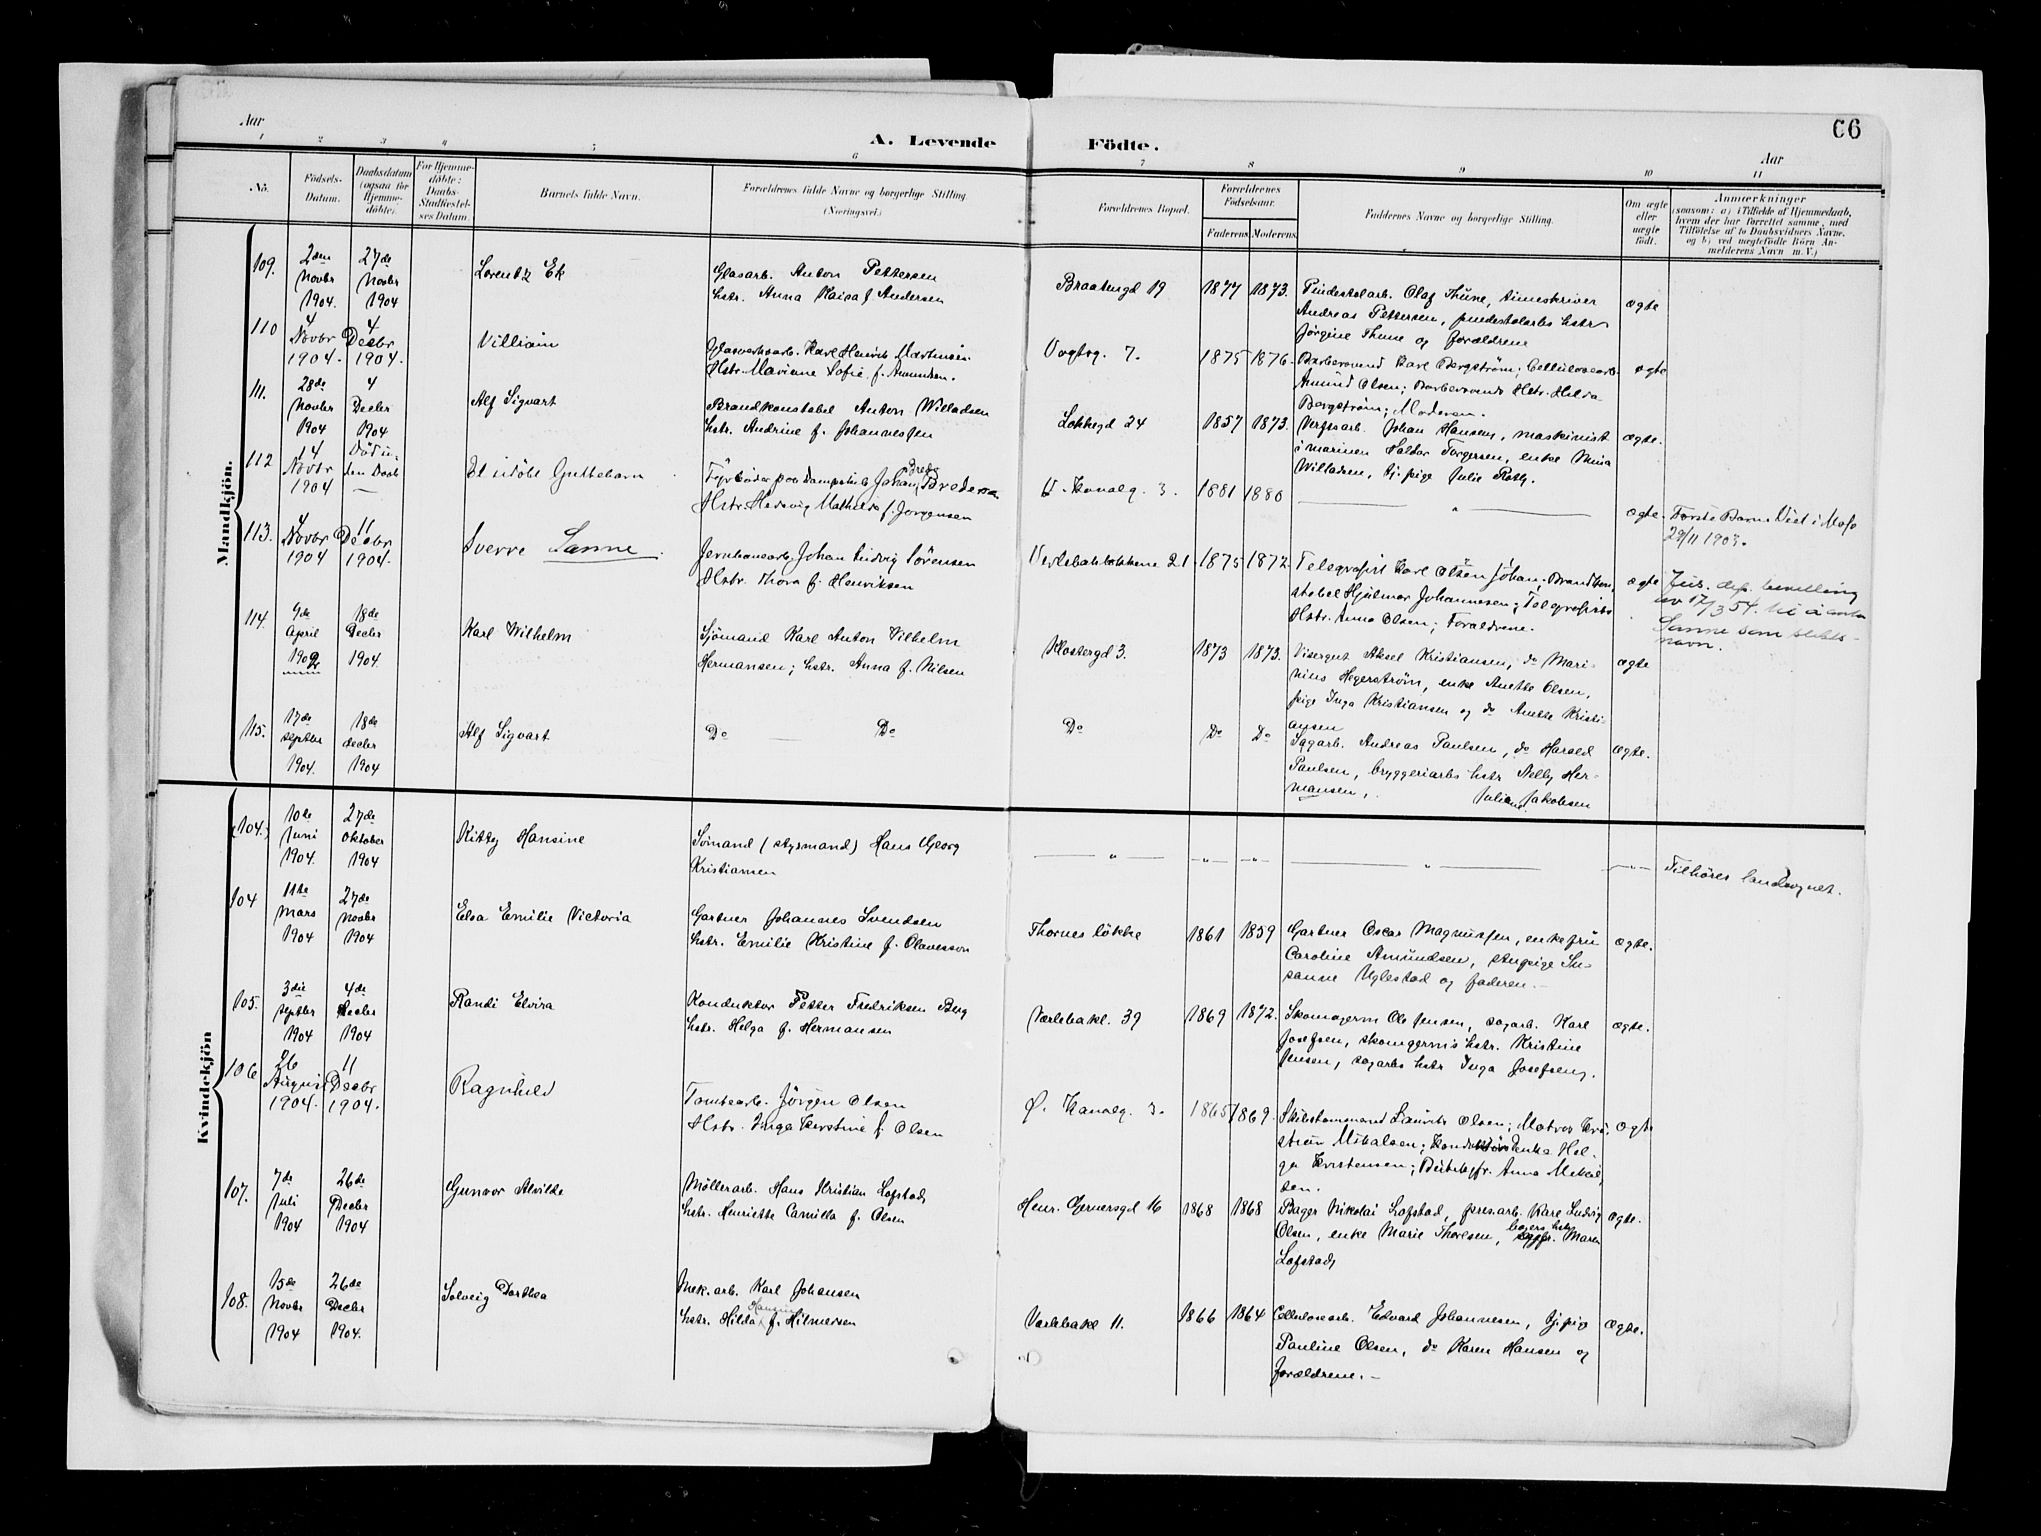 66
Aar
A. Levende Födte.
Aar
1 2 3 4 5 6 7 8 9 10 11
No.
Födsels-
Datum.
Daabsdatum
(ogsaa for
Hjemme-
döbte).
For Hjemme-
döbte:
Daabs-
Stadfestel-
ses Datum.
Barnets fulde Navn.
Forældrenes fulde Navne og borgerlige Stilling
(Næringsvei.)
Forældrenes Bopæl.
Forældrenes
Födselsaar.
Faderens.
Moderens.
Faddernes Navne og borgerlige Stilling.
Om ægte
eller
uægte
födt.
Anmærkninger
(saasom: a) i Tilfælde af Hjemmedaab,
hvem der har forrettet samme, med
Tilföielse af to Daabsvidners Navne,
og b) ved uegtefödte Börn An-
melderens Navn m. V.)
Mandkjön.
109. 2den Novbr 1904. 27de Novbr 1904
Lorentz Ek
Glasarb. Anton Pettersen
hstr. Anna Kaisa f. Andersen
Braatengd 19 1877 1873.
Olaf Thune, timeskriver
Andreas Pettersen,
Jörgine Thune og forældrene
ægte
110 4 Novbr 1904. 4 Decbr 1904.
Villiam
Glasverksarb. Karl Henrik Martinsen
Hstr. Mariane Sofie f. Amundsen.
Vogtsg. 7. 1875 1876.
Barbersvend Karl Bergström; Cellulosearb.
Amund Olsen; Barbersvends Hstr. Hilda
Bergström; Moderen.
ægte
111. 28de Novber 1904 4 Decbr 1904
Alf Sigvart
Brandkonstabel Anton Willadsen
hstr. Andrine f. Johannessen
Lökkegd 24 1857 1873.
Verftsarb. Johan Hansen, maskinist
i marinen Haldor Torgersen, enke Mina
Willadsen, tj. pige Julie Roth.
ægte.
112 14 Novbr 1904 Död u-
den Daab
—
Et udöbt Guttebarn
Fyrböder paa Dampskib Johan Breder Bredesen
Hstr. Hedevig Mathilde f. Jorgensen
V. Kanalg. 3. 1881 1880
— " —
ægte. Förste Barn. Viet i Moss
29/11 1903.
113. 4 Novbr 1904 11 Decbr 1904.
Sverre Sanne.
Jernbanearb. Johan Ludvig Sörensen
Hstr. Thora f. Henriksen
Verlebaklökkene 21. 1875 1872.
Telegrafist Karl Olsen Johan; Brandkon-
stabel Hjalmar Johannesen; Telegrafists
Hstr. Anna Olsen; Foraldrene.
ægte Jus. dep. bevilling
av 17/3 54. til å anta
Sanne som slekts-
navn.
114. 9de April 1902 18de Decbr 1904.
Karl Wilhelm
Sjömand Karl Anton Vilhelm
Hermansen; hstr. Anna f. Nilsen
Klostergd 3. 1873 1873.
Visergut Aksel Kristiansen, do Mari-
nius Hegerström, enke Anette Olsen,
pige Inga Kristiansen og do Anette Kristi-
ansen
ægte
115. 17de septbr 1904. 18de decbr 1904
Alf Sigvart
Do — Do
Do Do Do
Sagarb. Andreas Paulsen, do Harald
Paulsen, bryggeriarbs hstr Nelly Her-
mansen, Juliane Jakobsen
ægte.
Kvindekjön
(104.) 10de Juni 1904. 27de oktober 1904
Kitty Hansine
Sömand (styrmand) Hans Georg
Kristiansen
— " — — " — — " — — " — — " —
Tilhörer landsognet.
104 11te Mars 1904 27de Novbr 1904
Elsa Emilie Victoria
Gartner Johannes Svendsen
hstr. Emilie Kristine f. Olavesson
Thornes lökke 1861 1859
Gartner Oscar Magnussen, enkefru
Caroline Amundsen, Su-
sanne Uglestad og faderen. —
ægte.
105. 3die septbr 1904 4de decbr 1904
Randi Elvira
Konduktör Petter Fredriksen Berg
hstr. Helga f. Hermansen
Værlebakl. 39 1869 1872.
Skomagerm Ole Jensen, sagarb. Karl
Josefsen, skomgerms hstr. Kristine
Jensen, sagarbs hstr Inga Josefsen.
ægte.
106 26 August 1904. 11 Decbr 1904.
Ragnhild
Tomtearb. Jörgen Olsen
Hstr. Inga Kirstine f. Olsen
Ö. Kanalg. 3. 1865 1869.
Skibstømmermand Laurits Olsen; Matros Kri-
stian Mikalsen; Enke Hel-
ga Kristensen; Anna Mikal-
sen.
ægte
107. 7de Juli 1904 26de Decbr 1904
Gunvor Alvilde
Möllerarb. Hans Kristian Lofstad,
hstr. Henriette Camilla f. Olsen
Henr. Gernersgd 16 1868 1868
Bager Nikolai Lofstad, Karl Ludvig
Olsen, enke Marie Thorlesen, bagers hstr. Maren
Lofstad,
ægte.
108. 15de Novbr 1904 26de Decbr 1904.
Solveig Dorthea
Mek. arb. Karl Johansen
hstr. Hilda Hansine f. Hilmersen
Værlebakl 11. 1866 1864
Cellulosearb. Edvard Johannesen, tj. pige
Pauline Olsen, do Karen Hansen og
forældrene. —
ægte.